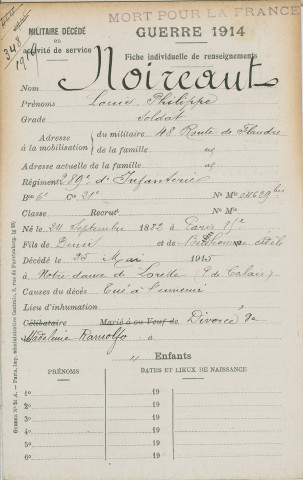 MORT POUR LA FRANCE
MILITAIRE DÉCÉDÉ
en
activité de service
GUERRE 1914
Fiche individuelle de renseignements
Nom Noireaut
Prénoms Louis Philippe
Grade Soldat
Adresse à la mobilisation du militaire 48 Route de Flandre
de la famille
Adresse actuelle de la famille
Régiment 289e d'Infanterie
Bon 6e Cie 21e No Mle 04629 bis
Classe Recrut No Mle
Né le 24 Septembre 1882 à Paris
Fils de et de
Décédé le 25 Mai 1915
à Notre dame de Lorette (P. de Calais)
Causes du décès Tué à l'ennemi
Lieu d'inhumation
Célibataire Marié à ou Veuf de Divorcé de
Madeleine à
Enfants
PRÉNOMS DATES ET LIEUX DE NAISSANCE
1o 19
2o 19
3o 19
4o 19
5o 19
6o 19